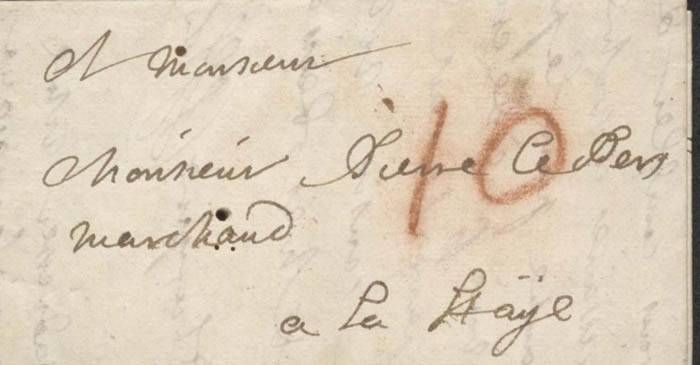 A Monsieur
Monsieur Pierre Ceders
marchand
a La Haÿe
10